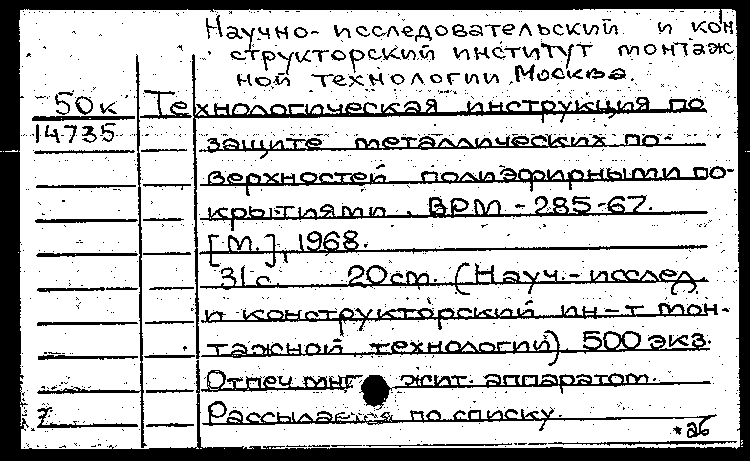 Научно-исследовательский и кон
структорский институт монтаж
ной технологии. Москва.
50к Технологическая инструкция по
14735 защите металлических по-
верхностей полиэфирными по-
крытиями. ВРМ-285-67.
[М.], 1968.
31с. 20см. (Науч.-исслед.
и конструкторский ин-т мон-
тажной технологии) 500 экз.
Отпеч мнг жит. аппаратом.
Рассылается по списку.